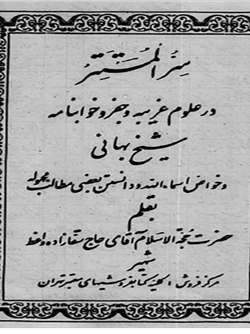 سر المستتر
در علوم غریبه و جفر و خوابنامه
شیخ بهائی
و خواص اسماء الله و دانستن بعضی مطالب مجهوله
بقلم
حضرت حجة الاسلام آقای حاج سقازاده واعظ
مرکز فروش: کلیه کتابفروشیهای معتبر تهران